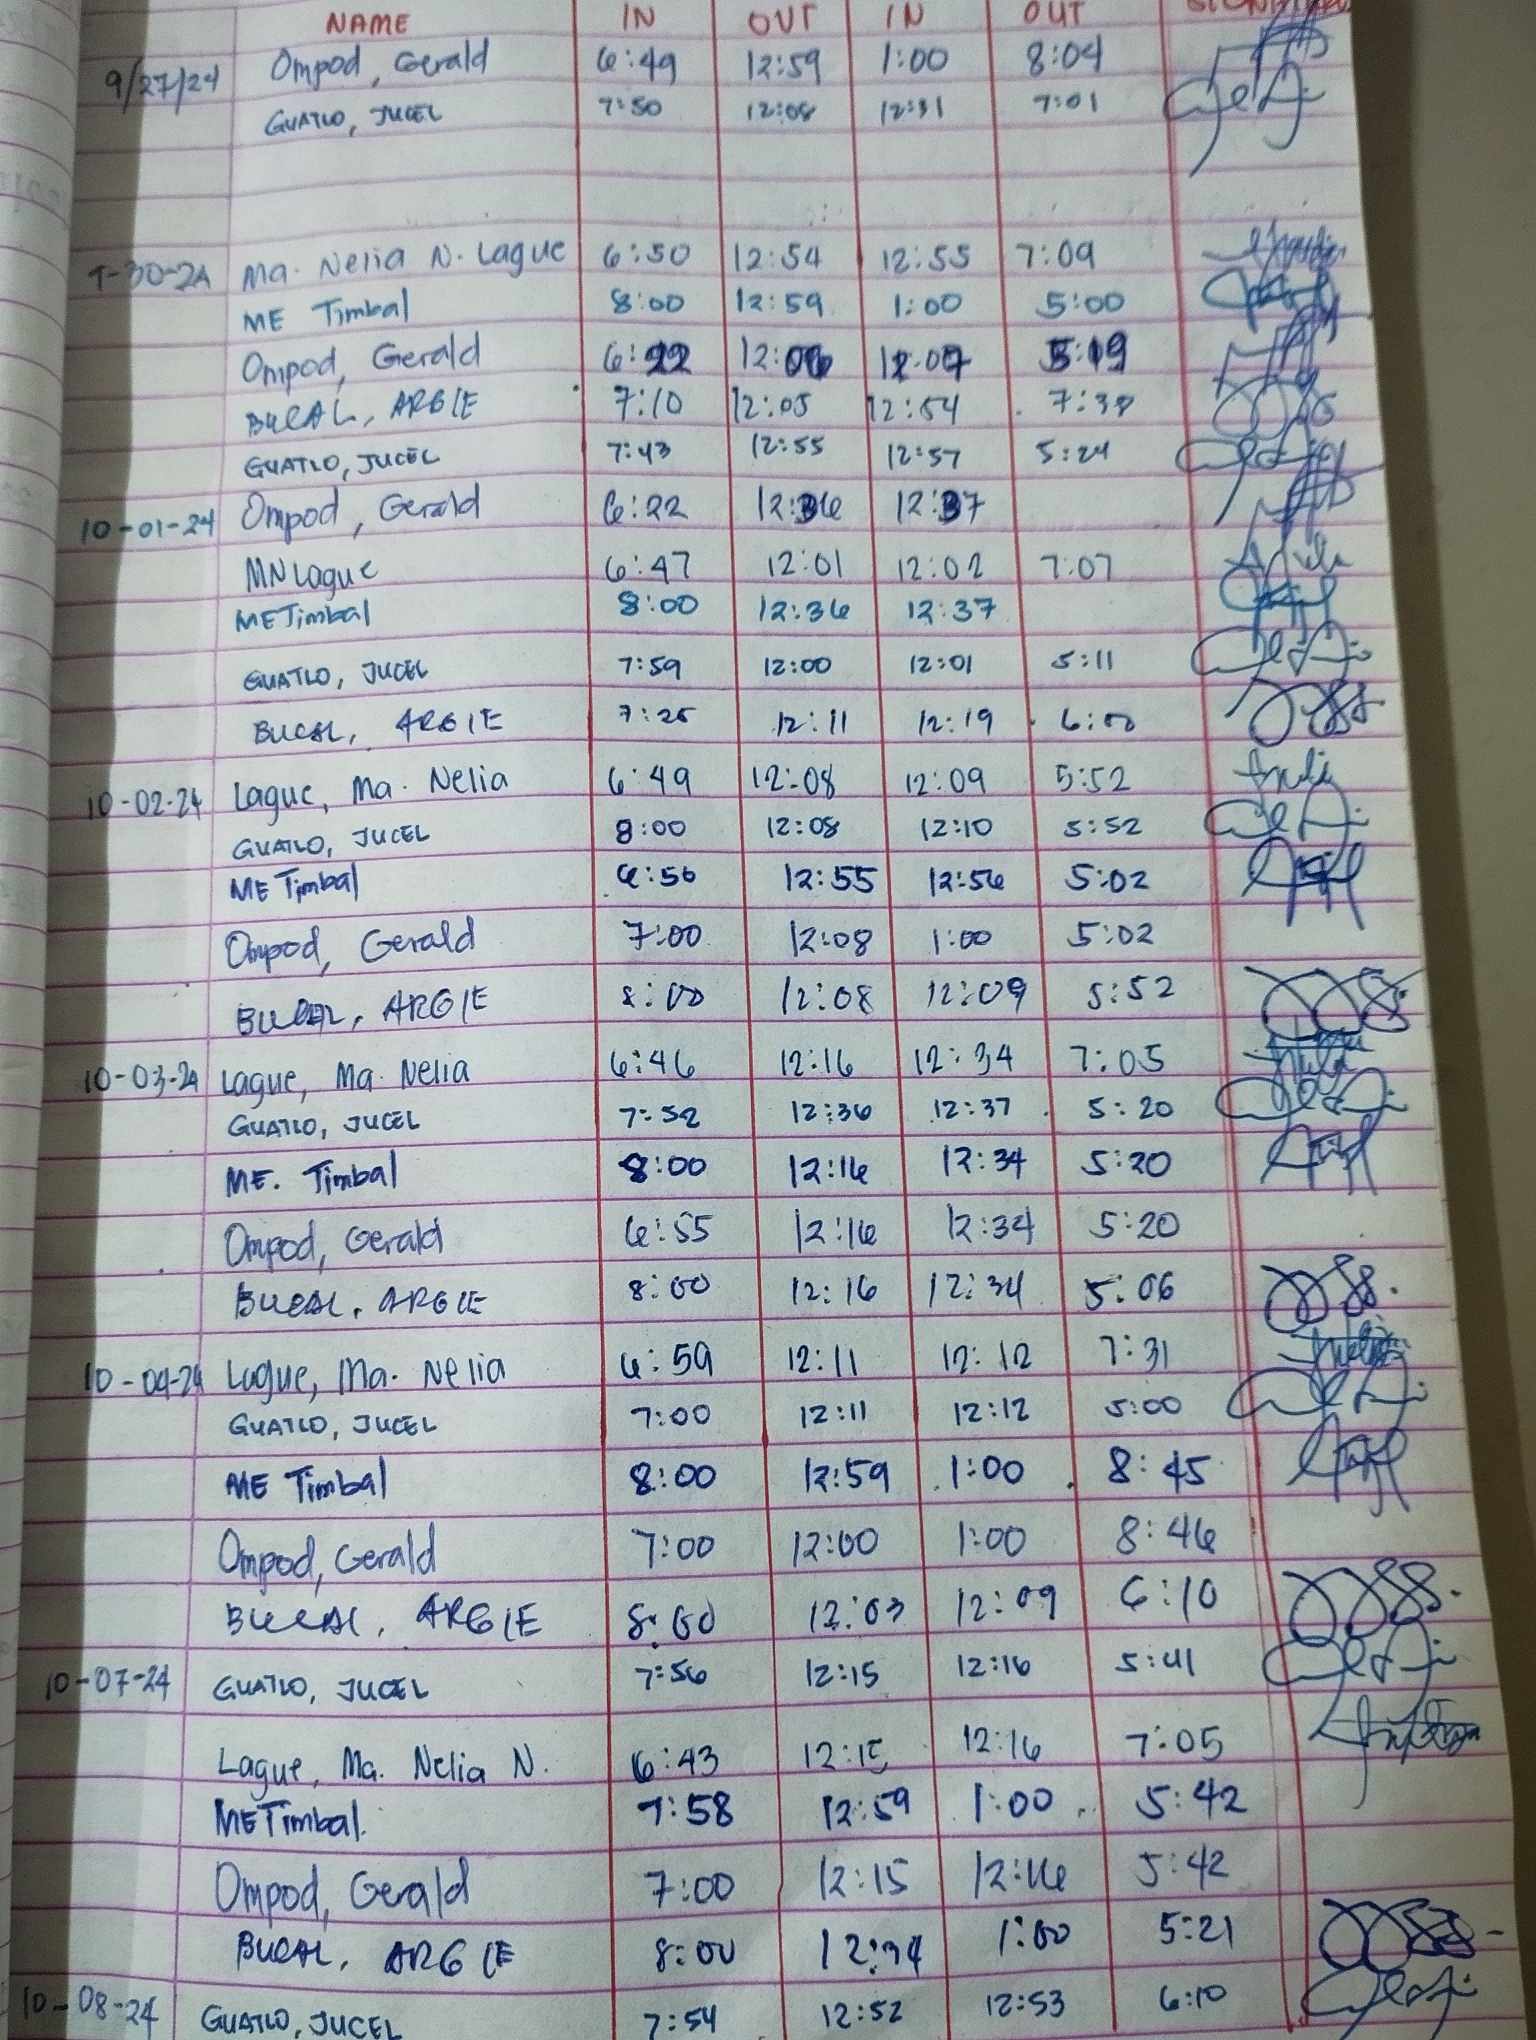 NAME IN OUT IN OUT
9/27/24 Ompod, Gerald 6:49 12:59 1:00 8:04
GUATLO, JUCEL 7:50 12:08 12:31 7:01
9-30-24 Ma. Nelia N. Lague 6:50 12:54 12:55 7:09
ME Timbal 8:00 12:59 1:00 5:00
Ompod, Gerald 6:22 12:06 12:07 5:19
BUCAL, ARGIE 7:10 12:05 12:54 7:38
GUATLO, JUCEL 7:43 12:55 12:57 5:24
10-01-24 Ompod, Gerald 6:22 12:36 12:37
MN Lague 6:47 12:01 12:02 7:07
ME Timbal 8:00 12:36 12:37
GUATLO, JUCEL 7:59 12:00 12:01 5:11
BUCAL, ARGIE 7:25 12:11 12:19 6:00
10-02-24 Lague, Ma. Nelia 6:49 12:08 12:09 5:52
GUATLO, JUCEL 8:00 12:08 12:10 5:52
ME Timbal 6:56 12:55 12:56 5:02
Ompod, Gerald 7:00 12:08 1:00 5:02
BUCAL, ARGIE 8:00 12:08 12:09 5:52
10-03-24 Lague, Ma. Nelia 6:46 12:16 12:34 7:05
GUATLO, JUCEL 7:52 12:36 12:37 5:20
ME. Timbal 8:00 12:16 12:34 5:20
Ompod, Gerald 6:55 12:16 12:34 5:20
BUCAL, ARGIE 8:00 12:16 12:34 5:06
10-04-24 Lague, Ma. Nelia 6:59 12:11 12:12 7:31
GUATLO, JUCEL 7:00 12:11 12:12 5:00
ME Timbal 8:00 12:59 1:00 8:45
Ompod, Gerald 7:00 12:00 1:00 8:46
BUCAL, ARGIE 8:00 12:03 12:09 6:10
10-07-24 GUATLO, JUCEL 7:56 12:15 12:16 5:41
Lague, Ma. Nelia N. 6:43 12:15 12:16 7:05
ME Timbal. 7:58 12:59 1:00 5:42
Ompod, Gerald 7:00 12:15 12:16 5:42
BUCAL, ARGIE 8:00 12:34 1:00 5:21
10-08-24 GUATLO, JUCEL 7:54 12:52 12:53 6:10